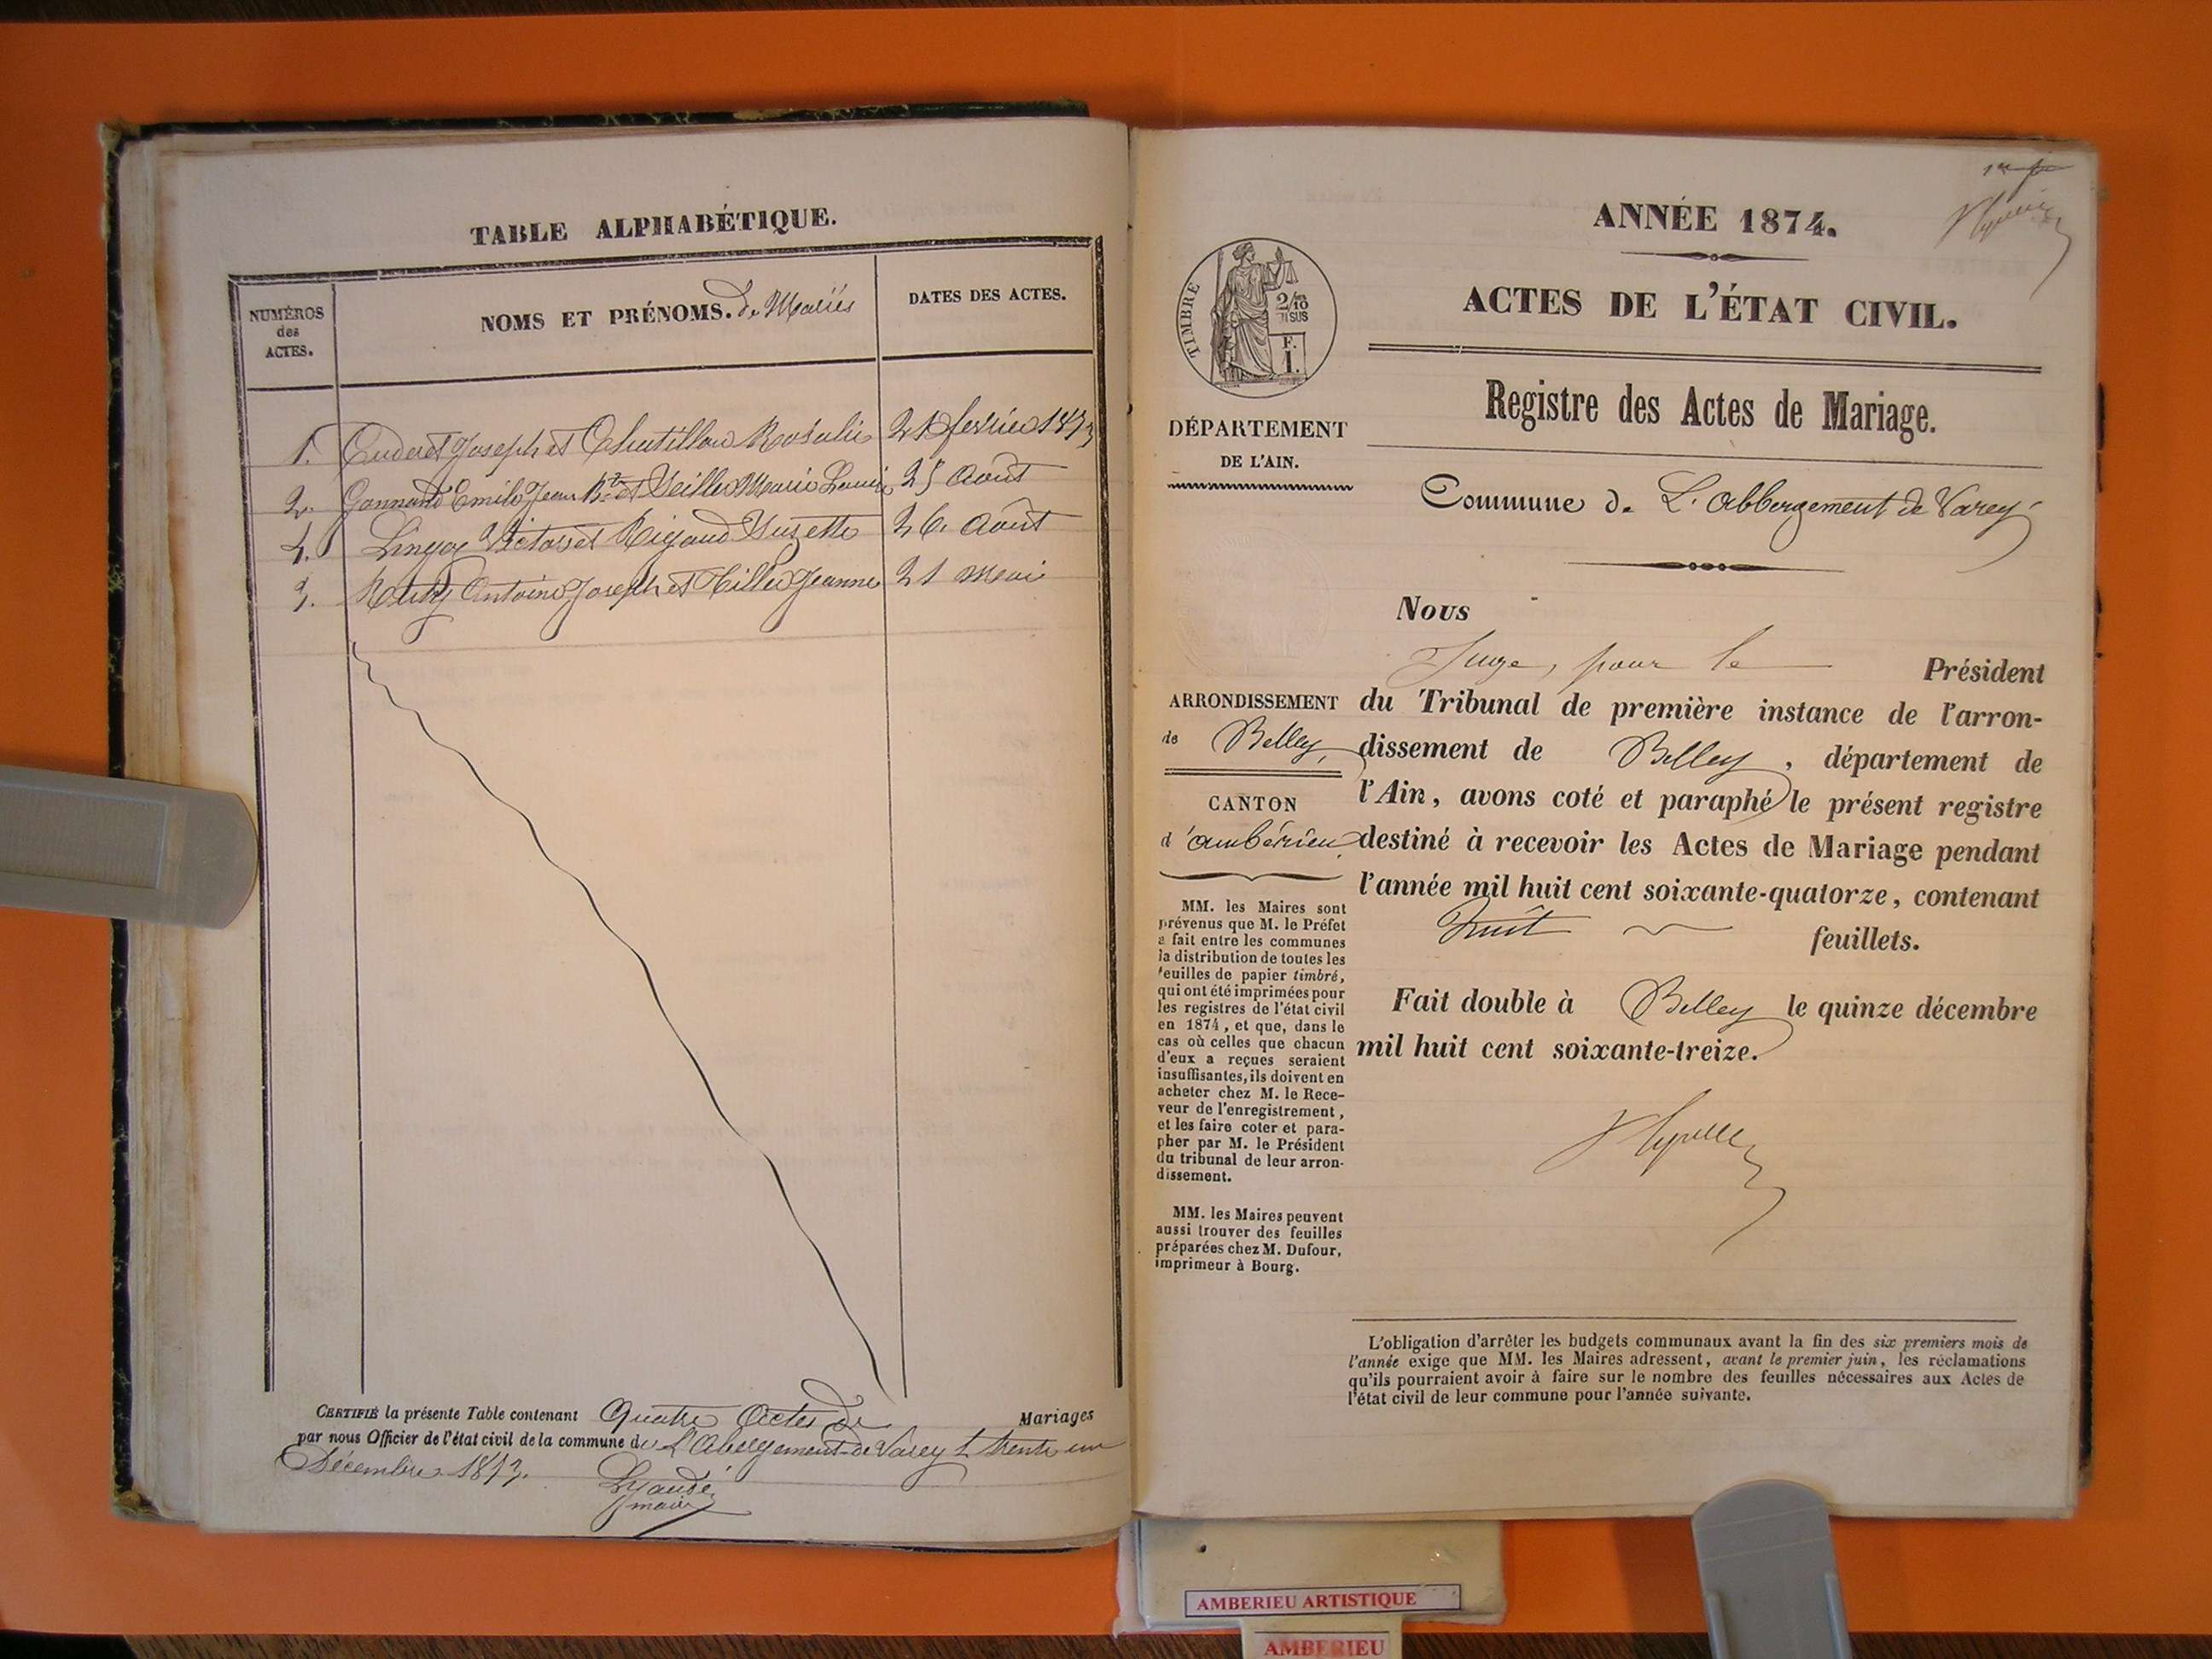 TABLE ALPHABÉTIQUE.
NUMÉROS
des
ACTES.
NOMS ET PRÉNOMS. de Mariés
DATES DES ACTES.
1. Joseph et Chatillon Rosalie 21 février 1873
2. Gonnand Emile Jean Bte et Veille Marie Louise 25 Août
4. Victor et Rigaud Suzette 26 Août
3. Antoine Joseph et Jeanne 21 Mai
CERTIFIÉ la présente Table contenant Quatre Actes de Mariages
par nous Officier de l'état civil de la commune de L'Abergement-de Varey L trente un
Décembre 1873.
maire
1er
ANNÉE 1874.
ACTES DE L'ÉTAT CIVIL.
Registre des Actes de Mariage.
Commune de L'abbergement de Varey
TIMBRE
2/10
EN SUS
F.
1.
DÉPARTEMENT
DE L'AIN.
ARRONDISSEMENT
de Belley,
CANTON
d'ambérieu
MM. les Maires sont
prévenus que M. le Préfet
a fait entre les communes
la distribution de toutes les
feuilles de papier timbré,
qui ont été imprimées pour
les registres de l'état civil
en 1874, et que, dans le
cas où celles que chacun
d'eux a reçues seraient
insuffisantes, ils doivent en
acheter chez M. le Rece-
veur de l'enregistrement,
et les faire coter et para-
pher par M. le Président
du tribunal de leur arron-
dissement.
MM. les Maires peuvent
aussi trouver des feuilles
préparées chez M. Dufour,
imprimeur à Bourg.
Nous
Juge, pour le Président
du Tribunal de première instance de l'arron-
dissement de Belley, département de
l'Ain, avons coté et paraphé le présent registre
destiné à recevoir les Actes de Mariage pendant
l'année mil huit cent soixante-quatorze, contenant
huit feuillets.
Fait double à Belley le quinze décembre
mil huit cent soixante-treize.
L'obligation d'arrêter les budgets communaux avant la fin des six premiers mois de
l'année exige que MM. les Maires adressent, avant le premier juin, les réclamations
qu'ils pourraient avoir à faire sur le nombre des feuilles nécessaires aux Actes de
l'état civil de leur commune pour l'année suivante.
AMBERIEU ARTISTIQUE
AMBERIEU